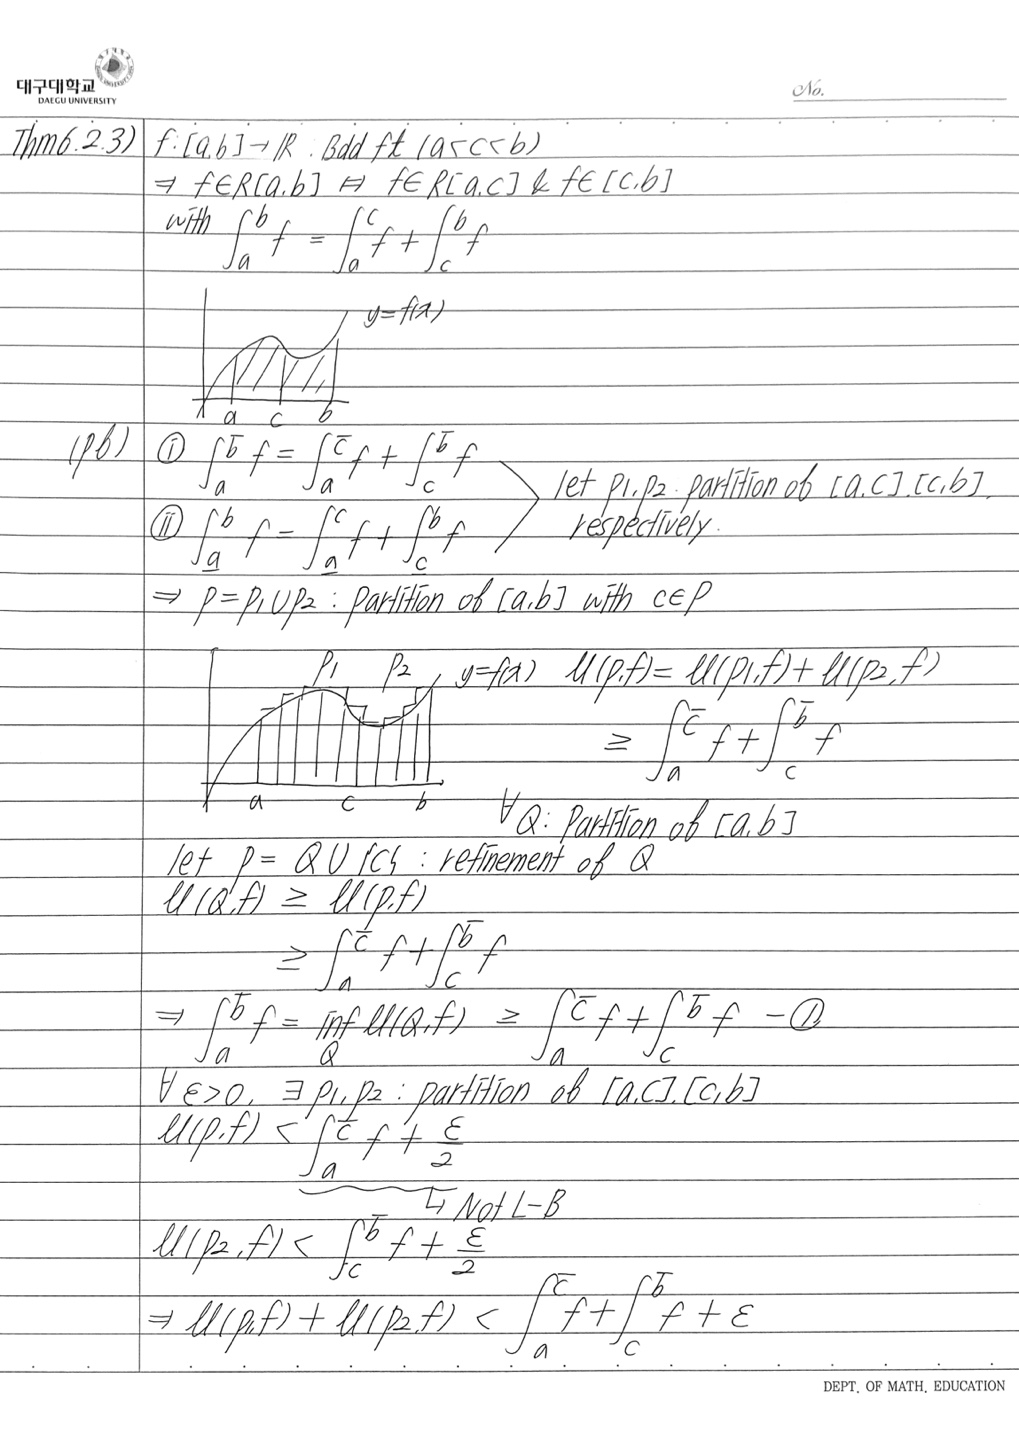 대구대학교
DAEGU UNIVERSITY
No.
Thm6.2.3) f:[a,b]→ℝ : Bdd ft (a<c<b)
⇒ f∈R[a,b] ⇔ f∈R[a,c] & f∈[c,b]
with ∫_a^b f = ∫_a^c f + ∫_c^b f
y=f(x)
a c b
(pf) ⓘ ∫_a^b̅ f = ∫_a^c̅ f + ∫_c^b̅ f
let p1,p2. partition of [a,c].[c,b].
ⓘⓘ ∫_a̲^b f = ∫_a̲^c f + ∫_c̲^b f
respectively.
⇒ p=p1∪p2 : partition of [a,b] with c∈p
p1 p2 y=f(x) U(p,f)=U(p1,f)+U(p2,f)
≥ ∫_a^c̅ f + ∫_c^b̅ f
a c b
∀Q: partition of [a,b]
let p = Q∪{c} : refinement of Q
U(Q,f) ≥ U(p,f)
≥ ∫_a^c̅ f + ∫_c^b̅ f
⇒ ∫_a^b̅ f = inf_Q U(Q,f) ≥ ∫_a^c̅ f + ∫_c^b̅ f -①
∀ε>0, ∃p1,p2 : partition of [a,c].[c,b]
U(p,f) < ∫_a^c̅ f + ε/2
↳ Not L-B
U(p2,f) < ∫_c^b̅ f + ε/2
⇒ U(p1,f) + U(p2,f) < ∫_a^c̅ f + ∫_c^b̅ f + ε
DEPT. OF MATH. EDUCATION